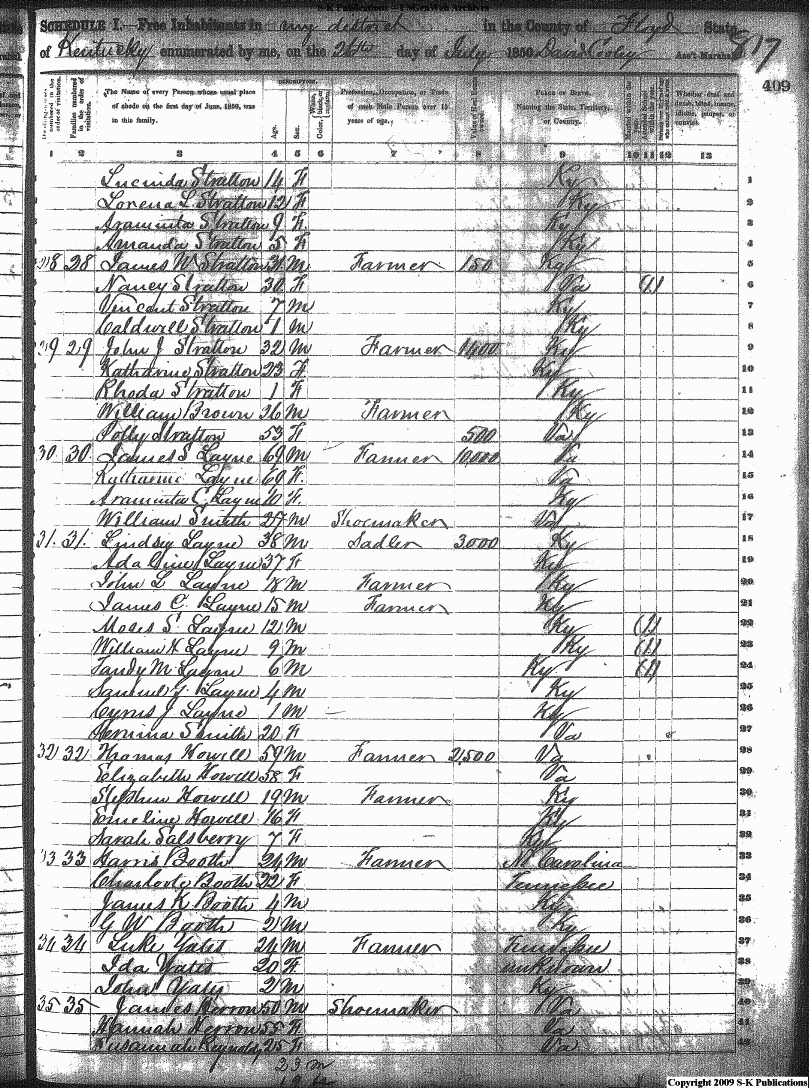 S-K Publications - USGenWeb Archives
SCHEDULE I.—Free Inhabitants in my district in the County of Floyd State
of Kentucky enumerated by me, on the 26th day of July 1850 David Cooley Ass't Marshal
817
409
DESCRIPTION.
The Name of every Person whose usual place of abode on the first day of June, 1850, was in this family.
Age.
Sex.
Profession, Occupation, or Trade of each Male Person over 15 years of age.
PLACE OF BIRTH. Naming the State, Territory, or Country.
Whether deaf and dumb, blind, insane, idiotic, pauper, or convict.
1 2 3 4 5 6 7 8 9 10 11 12 13
Lucinda Stratton 14 F Ky 1
Lorena L Stratton 12 F Ky 2
Araminta Stratton 9 F Ky 3
Amanda Stratton 5 F Ky 4
28 28 James W Stratton 31 M Farmer 150 Ky 5
Nancy Stratton 30 F Va (1) 6
Vincent Stratton 7 M Ky 7
Caldwell Stratton 1 M Ky 8
29 29 John J Stratton 32 M Farmer 1400 Ky 9
Katharine Stratton 23 F Ky 10
Rhoda Stratton 1 F Ky 11
William Brown 26 M Farmer Ky 12
Polly Stratton 53 F 500 Va 13
30. 30. James S Layne 69 M Farmer 10,000 Va 14
Katharine Layne 69 F. Va 15
Araminta C. Layne 10 F. Ky 16
William Smith 27 M Shoemaker Va 17
31. 31. Lindsey Layne 38 M Sadler 3,000 Ky 18
Adaline Layne 37 F Ky 19
John L Layne 18 M Farmer Ky 20
James C. Layne 15 M Farmer Ky 21
Moses S. Layne 12 M Ky (1) 22
William H Layne 9 M Ky (1) 23
Tandy M Layne 6 M Ky (1) 24
Samuel G Layne 4 M Ky 25
Cyrus J Layne 1 M Ky 26
Smith 20 F Va 27
32 32 Thomas Howell 59 M Farmer 2,500 Va 28
Elizabeth Howell 58 F Va 29
Stephen Howell 19 M Farmer Ky 30
Emeline Howell 16 F Ky 31
Sarah Salsberry 7 F Ky 32
33 33 Harris Booth 24 M Farmer No Carolina 33
Charlotte Booth 22 F Tennessee 34
James K Booth 4 M Ky 35
G W Booth 2 M Ky 36
34 34 Luke Yates 24 M Farmer Tennessee 37
Ida Yates 20 F unknown 38
John Yates 2 M Ky 39
35 35 James Herron 50 M Shoemaker Va 40
Hannah Herron 55 F Va 41
Susannah Reynolds 25 F Va 42
23 m
Copyright 2009 S-K Publications